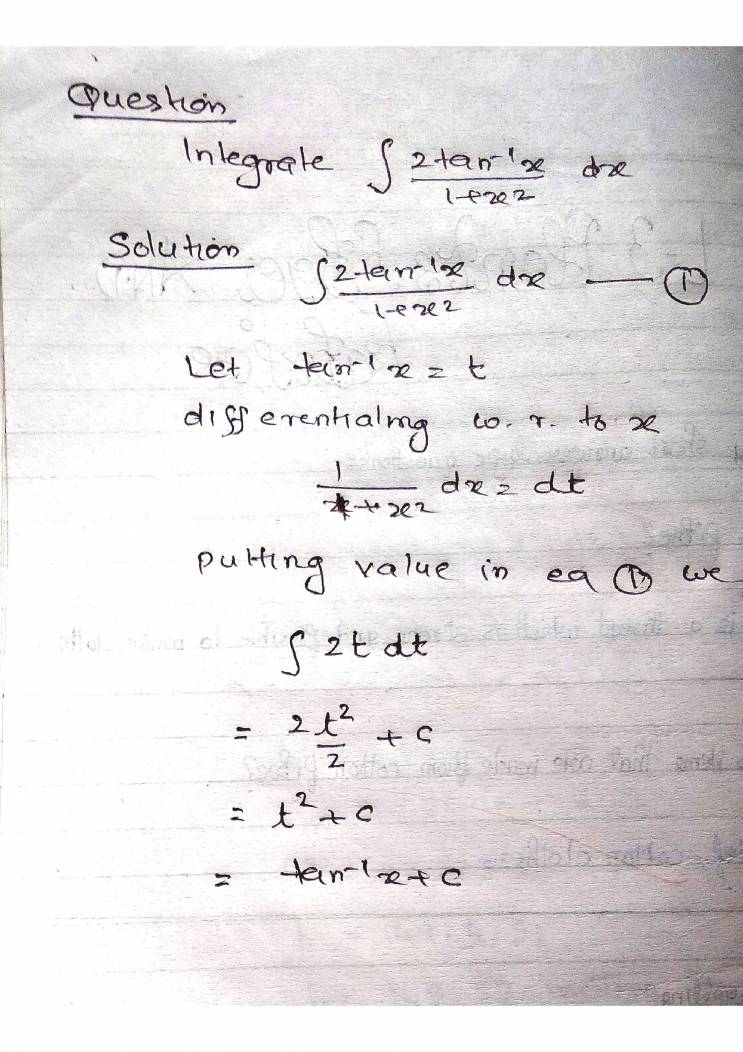 Question
Integrate ∫ 2tan⁻¹x / 1+x² dx
Solution
∫ 2tan⁻¹x / 1+x² dx — ①
Let tan⁻¹x = t
differentiating w. r. to x
1 / 1+x² dx = dt
putting value in eq ① we
∫ 2t dt
= 2t² / 2 + c
= t² + c
= tan⁻¹x + c